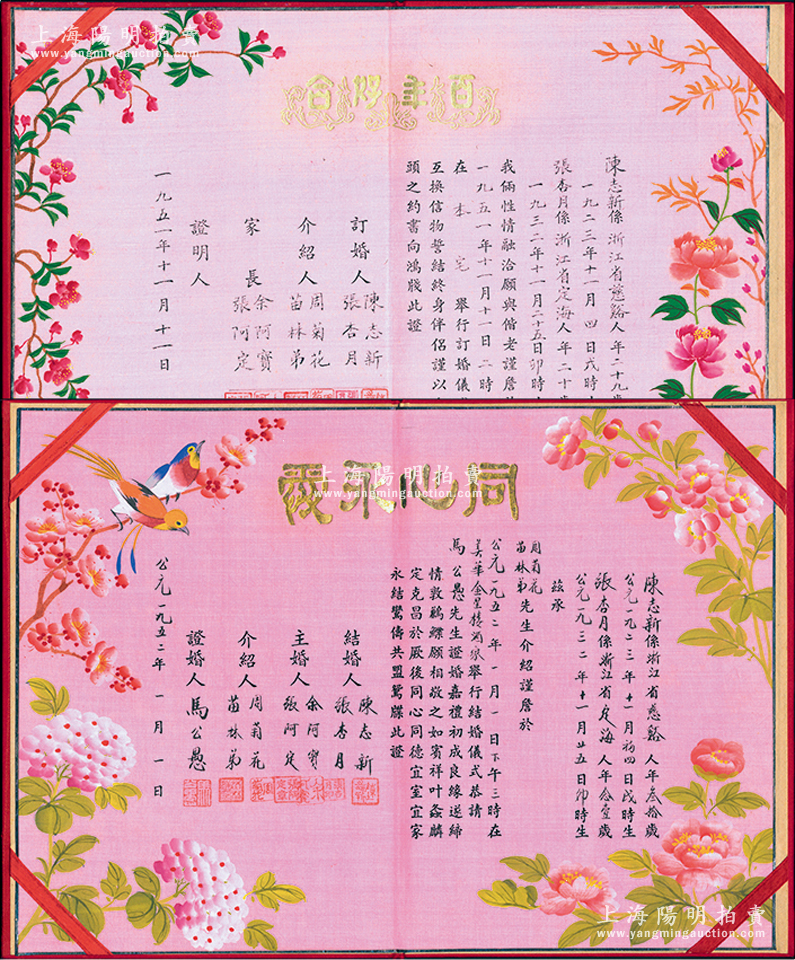 上海陽明拍賣
www.yangmingauction.com
百年好合
陳志新係浙江省慈谿人年二十九歲
一九二三年十一月四日戌時
張杏月係浙江省定海人年二十歲
一九三二年十一月二十五日卯時
我倆性情融洽願與偕老謹詹於
一九五一年十一月十一日二時
在本宅舉行訂婚儀
互換信物誓結終身伴侶謹以
頭之約書向鴻牋此證
訂婚人 陳志新 張杏月
介紹人 周菊花 苗林弟
家長 余阿寶 張阿定
證明人
一九五一年十一月十一日
上海陽明拍賣
www.yangmingauction.com
同心永愛
陳志新係浙江省慈谿人年叁拾歲
公元一九二三年十一月初四日戌時生
張杏月係浙江省定海人年念壹歲
公元一九三二年十一月廿五日卯時生
茲承
周菊花
苗林弟先生介紹謹詹於
公元一九五二年一月一日下午三時在
美華金星樓酒家舉行結婚儀式恭請
馬公愚先生證婚嘉禮初成良緣遂締
情敦鶼鰈願相敬之如賓祥叶螽麟
定克昌於厥後同心同德宜室宜家
永結鸞儔共盟鴛牒此證
結婚人 陳志新 張杏月
主婚人 余阿寶 張阿定
介紹人 周菊花 苗林弟
證婚人 馬公愚
公元一九五二年一月一日
上海陽明拍賣
www.yangmingauction.com